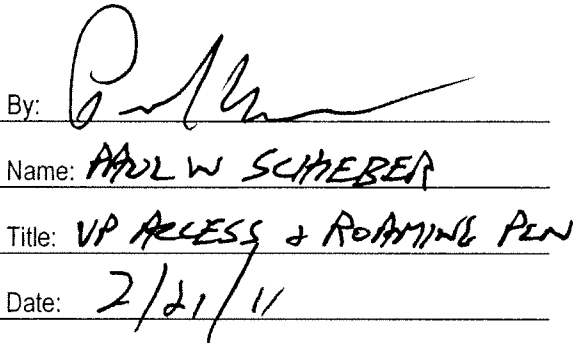 By:
Name: PAUL W SCHIEBER
Title: VP ACCESS & ROAMING PLN
Date: 2/21/11